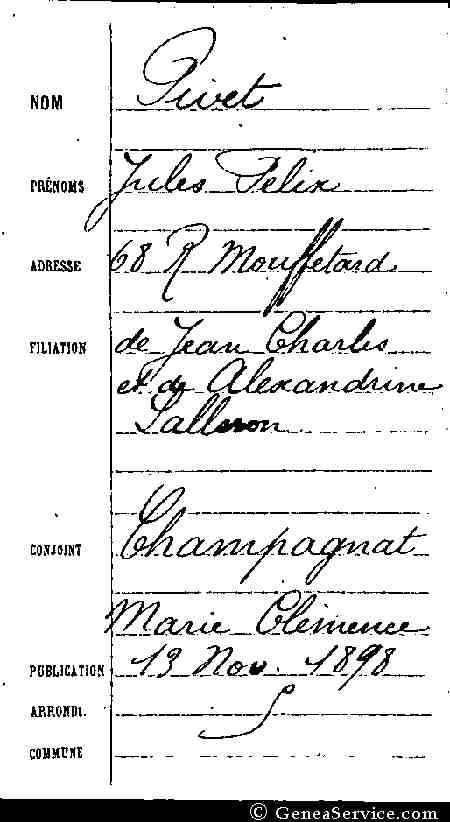 NOM Pivet
PRÉNOMS Jules Felix
ADRESSE 68 R Mouffetard
FILIATION de Jean Charles
et de Alexandrine
CONJOINT Champagnat
Marie Clémence
PUBLICATION 13 Nov. 1898
ARRONDI. 5
COMMUNE
© GeneaService.com